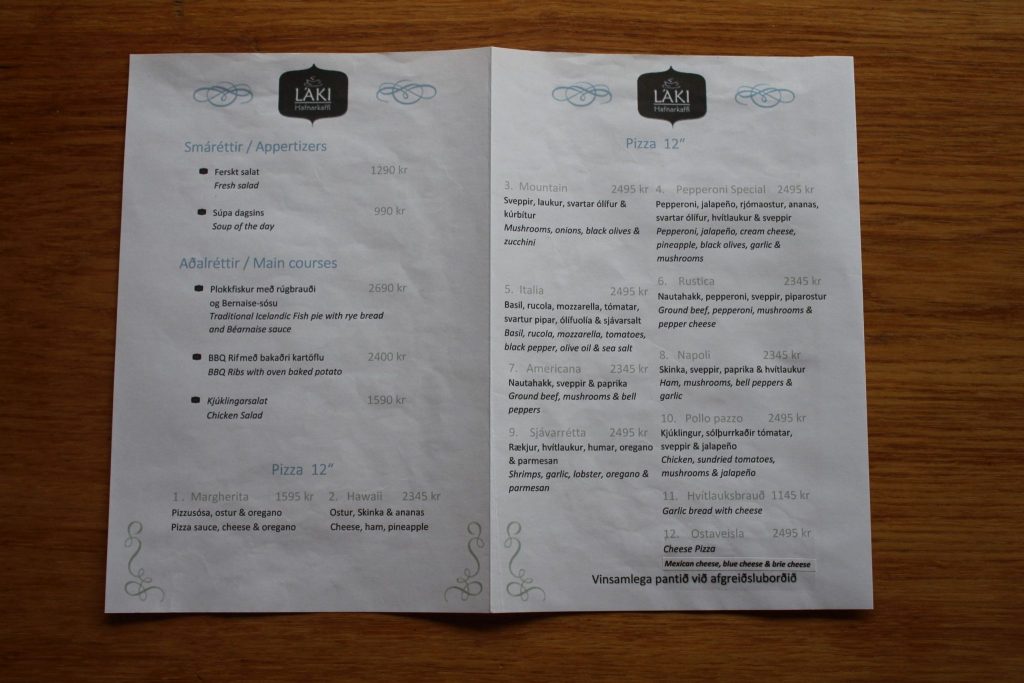 LÁKI
Hafnarkaffi
Smáréttir / Appertizers
Ferskt salat 1290 kr
Fresh salad
Súpa dagsins 990 kr
Soup of the day
Aðalréttir / Main courses
Plokkfiskur með rúgbrauði 2690 kr
og Bernaise-sósu
Traditional Icelandic Fish pie with rye bread
and Béarnaise sauce
BBQ Rif með bakaðri kartöflu 2400 kr
BBQ Ribs with oven baked potato
Kjúklingarsalat 1590 kr
Chicken Salad
Pizza 12"
1. Margherita 1595 kr
Pizzusósa, ostur & oregano
Pizza sauce, cheese & oregano
2. Hawaii 2345 kr
Ostur, Skinka & ananas
Cheese, ham, pineapple
LÁKI
Hafnarkaffi
Pizza 12"
3. Mountain 2495 kr
Sveppir, laukur, svartar ólífur &
kúrbítur
Mushrooms, onions, black olives &
zucchini
4. Pepperoni Special 2495 kr
Pepperoni, jalapeño, rjómaostur, ananas,
svartar ólífur, hvítlaukur & sveppir
Pepperoni, jalapeño, cream cheese,
pineapple, black olives, garlic &
mushrooms
5. Italia 2495 kr
Basil, rucola, mozzarella, tómatar,
svartur pipar, ólífuolía & sjávarsalt
Basil, rucola, mozzarella, tomatoes,
black pepper, olive oil & sea salt
6. Rustica 2345 kr
Nautahakk, pepperoni, sveppir, piparostur
Ground beef, pepperoni, mushrooms &
pepper cheese
7. Americana 2345 kr
Nautahakk, sveppir & paprika
Ground beef, mushrooms & bell
peppers
8. Napoli 2345 kr
Skinka, sveppir, paprika & hvítlaukur
Ham, mushrooms, bell peppers &
garlic
9. Sjávarrétta 2495 kr
Rækjur, hvítlaukur, humar, oregano
& parmesan
Shrimps, garlic, lobster, oregano &
parmesan
10. Pollo pazzo 2495 kr
Kjúklingur, sólþurrkaðir tómatar,
sveppir & jalapeño
Chicken, sundried tomatoes,
mushrooms & jalapeño
11. Hvítlauksbrauð 1145 kr
Garlic bread with cheese
12. Ostaveisla 2495 kr
Cheese Pizza
Mexican cheese, blue cheese & brie cheese
Vinsamlega pantið við afgreiðsluborðið